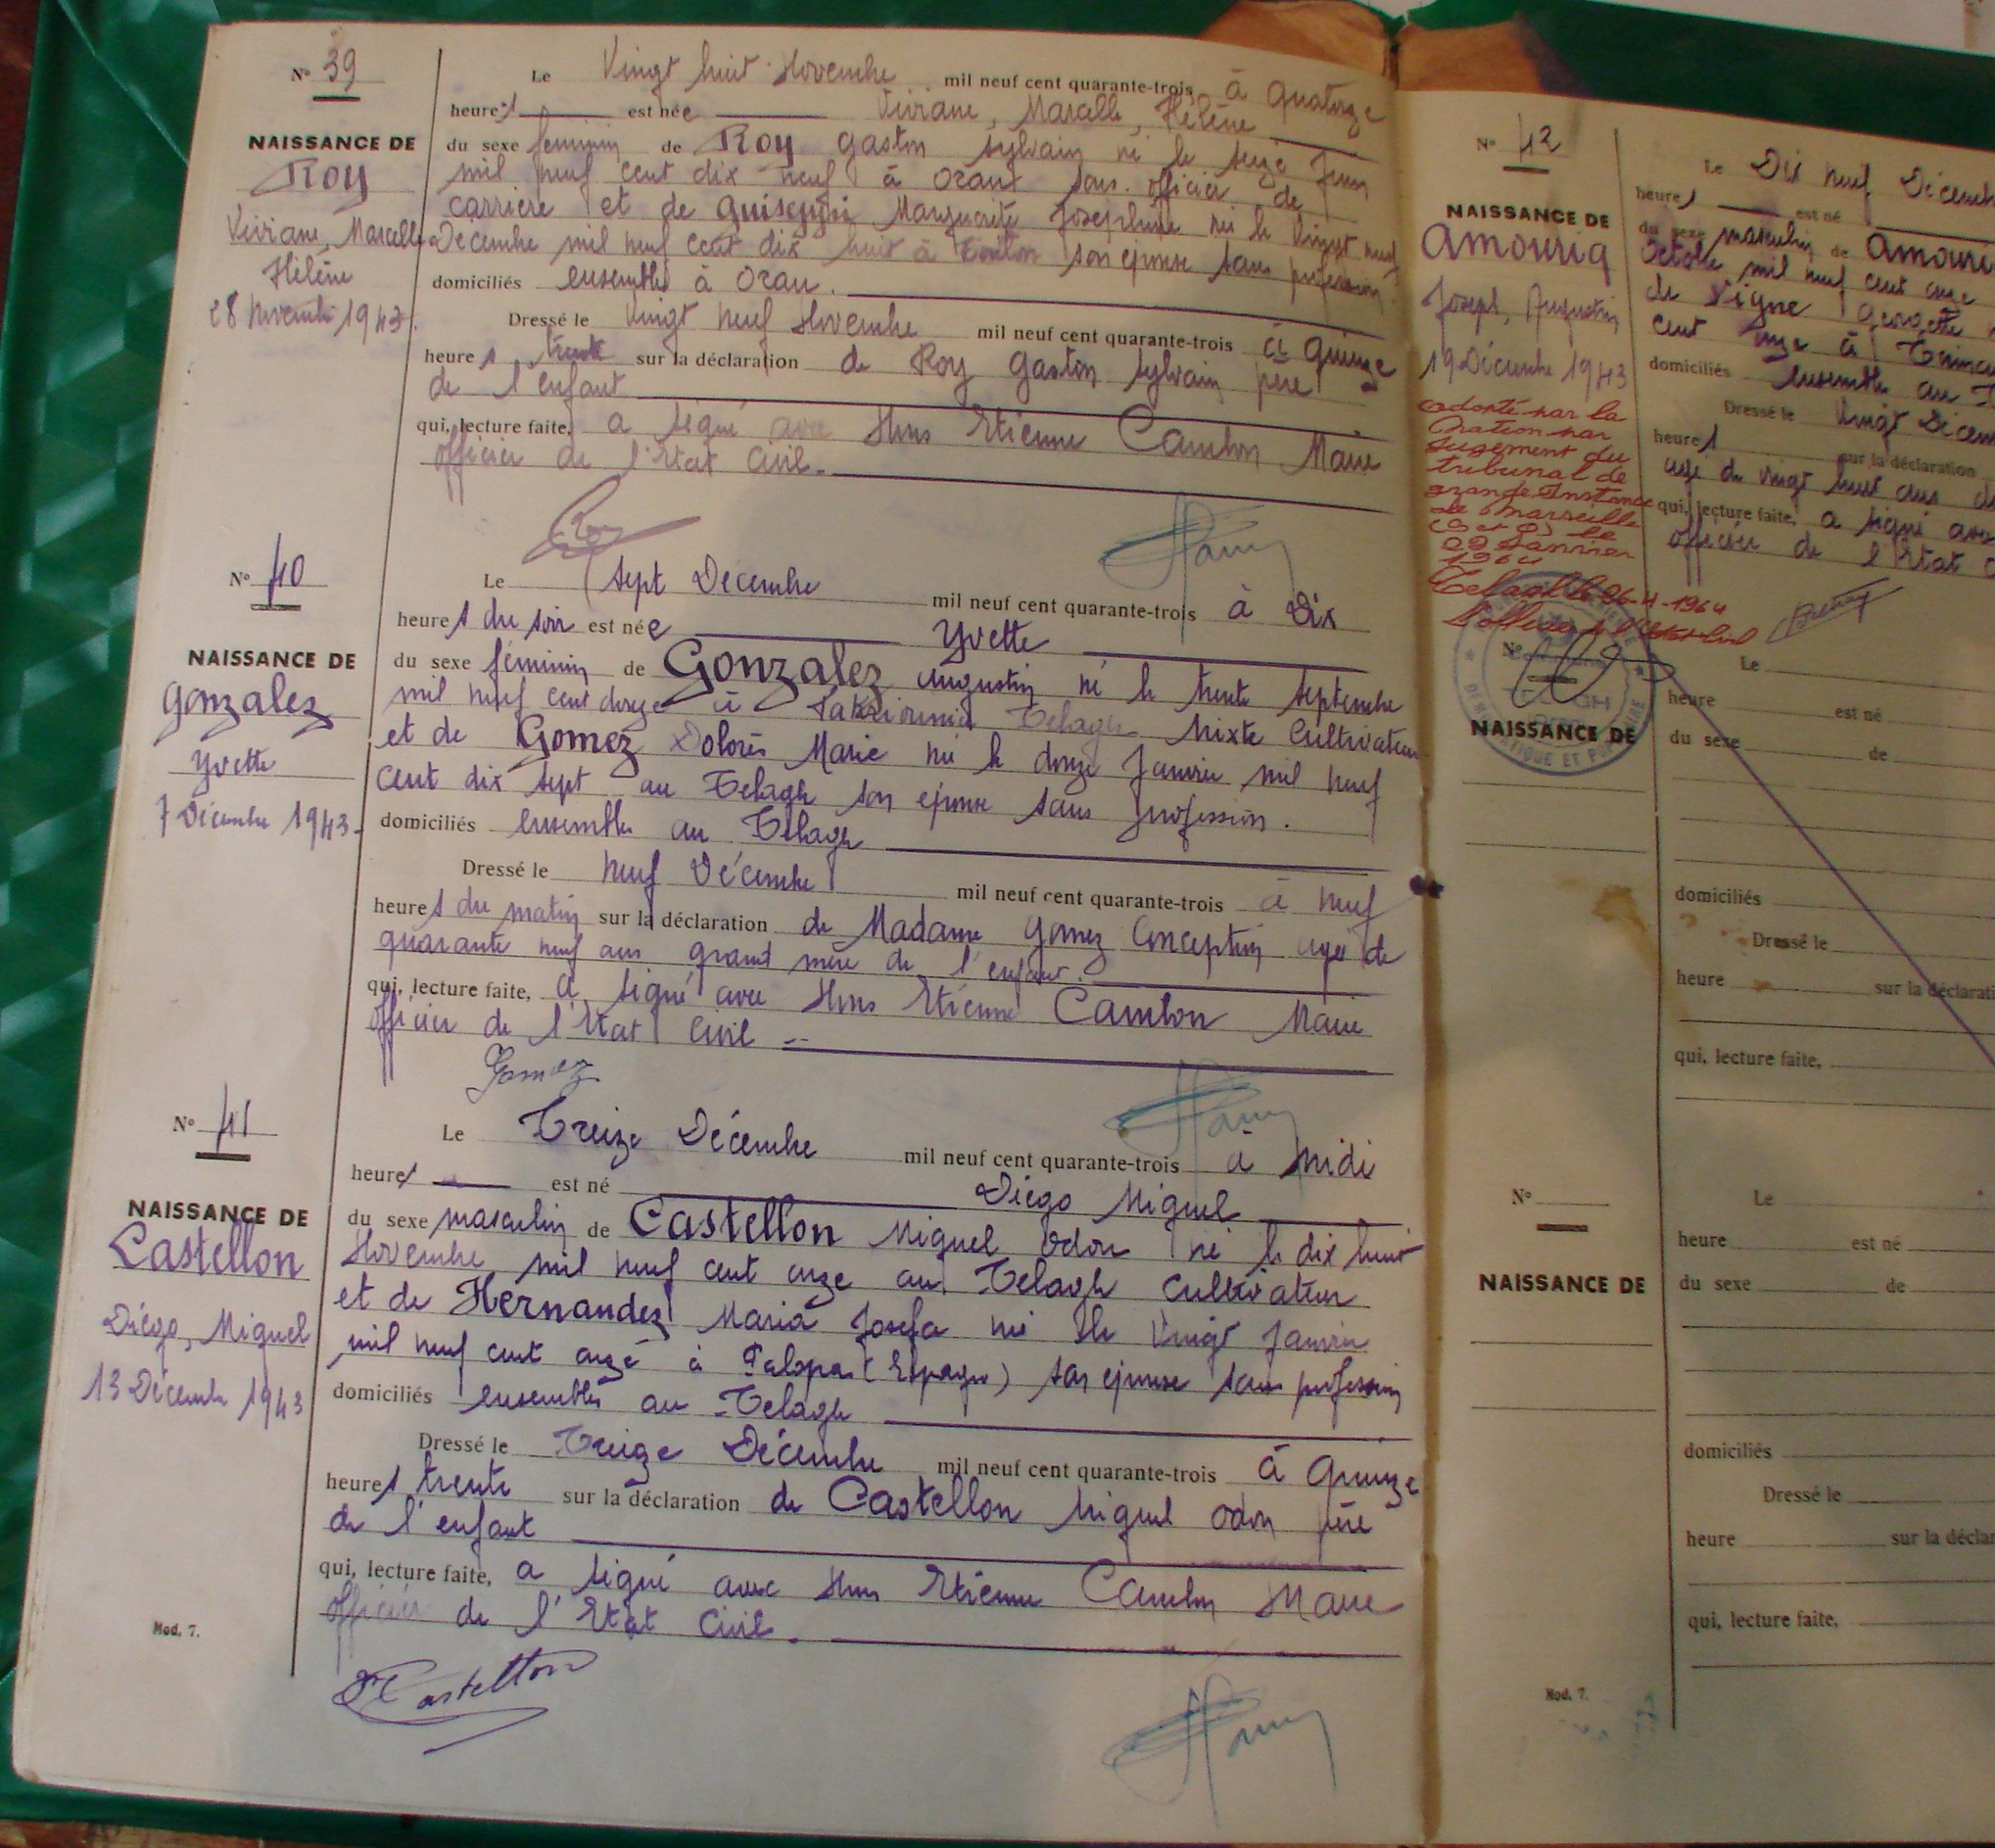 N° 39
NAISSANCE DE
Roy
Viviane, Marcelle
Hélène
28 Novembre 1943.
Le Vingt huit Novembre mil neuf cent quarante-trois à quatorze
heures est née Viviane, Marcelle, Hélène
du sexe féminin de Roy Gaston Sylvain né le seize Juin
mil neuf cent dix neuf à Oran sous officier de
carrière et de Marguerite Josephine née le Vingt neuf
Decembre mil neuf cent dix huit à son épouse sans profession
domiciliés ensembles à Oran.
Dressé le Vingt neuf Novembre mil neuf cent quarante-trois à quinze
heures trente sur la déclaration de Roy Gaston Sylvain père
de l'enfant
qui, lecture faite, a signé avec Nous Etienne Cambon Maire
officier de l'Etat Civil.
Roy
N° 40
NAISSANCE DE
Gonzalez
Yvette
7 Décembre 1943
Le Sept Decembre mil neuf cent quarante-trois à Dix
heures du soir est née Yvette
du sexe féminin de Gonzalez Augustin né le trente Septembre
mil neuf cent douze à Telagh Mixte Cultivateur
et de Gomez Dolorès Marie née le douze Janvier mil neuf
cent dix sept au Telagh son épouse sans profession.
domiciliés ensembles au Télagh
Dressé le neuf Décembre mil neuf cent quarante-trois à neuf
heures du matin sur la déclaration de Madame Gomez Conception agée de
quarante neuf ans grand mère de l'enfant.
qui, lecture faite, a signé avec Nous Etienne Cambon Maire
officier de l'Etat Civil
Gomez
N° 41
NAISSANCE DE
Castellon
Diégo, Miguel
13 Décembre 1943
Le Treize Décembre mil neuf cent quarante-trois à midi
heures est né Diégo Miguel
du sexe masculin de Castellon Miguel Odon né le dix huit
Novembre mil neuf cent onze au Telagh Cultivateur
et de Hernandez Maria Josefa née le Vingt Janvier
mil neuf cent onze à (Espagne) son épouse sans profession
domiciliés ensembles au Telagh
Dressé le Treize Décembre mil neuf cent quarante-trois à Quinze
heures trente sur la déclaration de Castellon Miguel Odon père
de l'enfant
qui, lecture faite, a signé avec Nous Etienne Cambon Maire
officier de l'Etat Civil.
Castellon
Mod. 7.
N° 42
NAISSANCE DE
Amourig
Joseph, Augustin
19 Décembre 1943
adopté par la
Nation par
jugement du
tribunal de
grande Instance
de Marseille
le
Janvier
1964
Telagh le 06-4-1964
Le Dix neuf Décemb
heures est né
du sexe masculin de Amouri
Octobre mil neuf cent onze
de Vigne Georgette
cent onze à
domiciliés ensembles au
Dressé le Vingt Décem
heures sur la déclaration
agé de vingt huit ans
qui, lecture faite, a signé avec
officier de l'Etat
N°
NAISSANCE DE
Le
heure est né
du sexe de
domiciliés
Dressé le
heure sur la déclarati
qui, lecture faite,
N°
NAISSANCE DE
Le
heure est né
du sexe de
domiciliés
Dressé le
heure sur la déclar
qui, lecture faite,
Mod. 7.